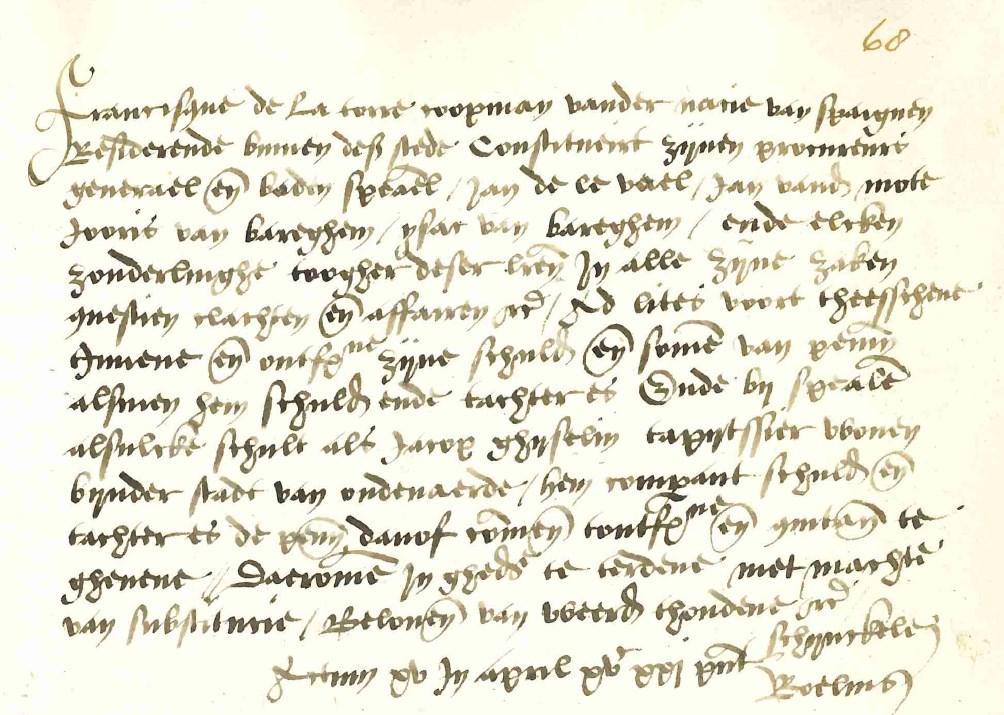 68
Francisque de la torre coopman vander nacie van spaignen
Residerende binnen deser stede Constitueirt zijnen procureurs
generael en̄ boden speciael / Jan de le vael / Jan vand' mote
Jooris van bareghem / ysac van bareghem / ende elcken
zonderlinghe toogher deser lrēn Jn alle zijne zaken
questien clachten en̄ affairen etc̄ / Ad lites voort theesschene
Jnnene en̄ ontf zijne schuld' en̄ som̄e van penn̄
alsmen hem schuld' ende tachter es Ende bij speciale
alsulcke schult als Jacop ghyselin tapytssier wonen
bynder stadt van oudenaerde / hem compant schuld' en̄
tachter es de penn̄ danof com̄en̄ tontf en̄ quitan̄ te
ghevene // Daerom̄e Jn ghed te terdene met machte
van substitucie / Beloven̄ van weerd' thoudene etc̄
Actum xv Jn april xvc xxj pn̄t
Schynckele
Roelins